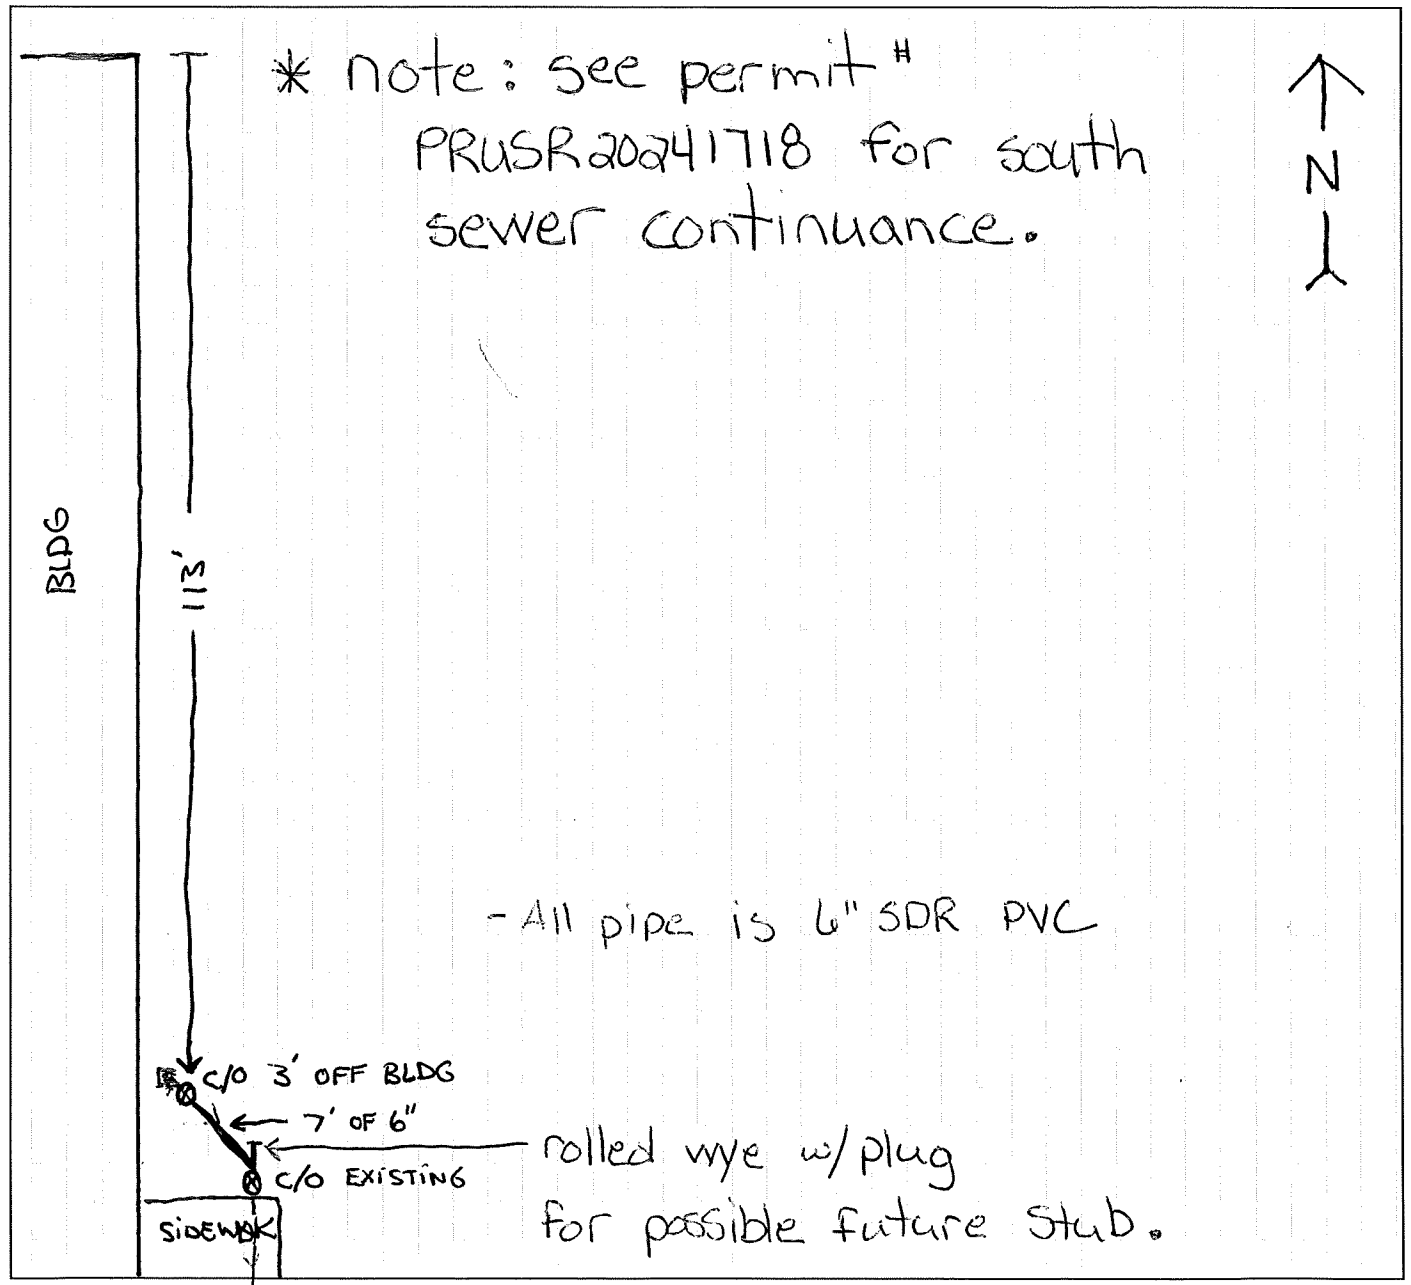 * note: see permit #
PRUSR20241718 for south
sewer continuance.
N
BLDG
113'
- All pipe is 6" SDR PVC
C/O 3' OFF BLDG
7' OF 6"
rolled wye w/plug
for possible future stub.
C/O EXISTING
SIDEWALK